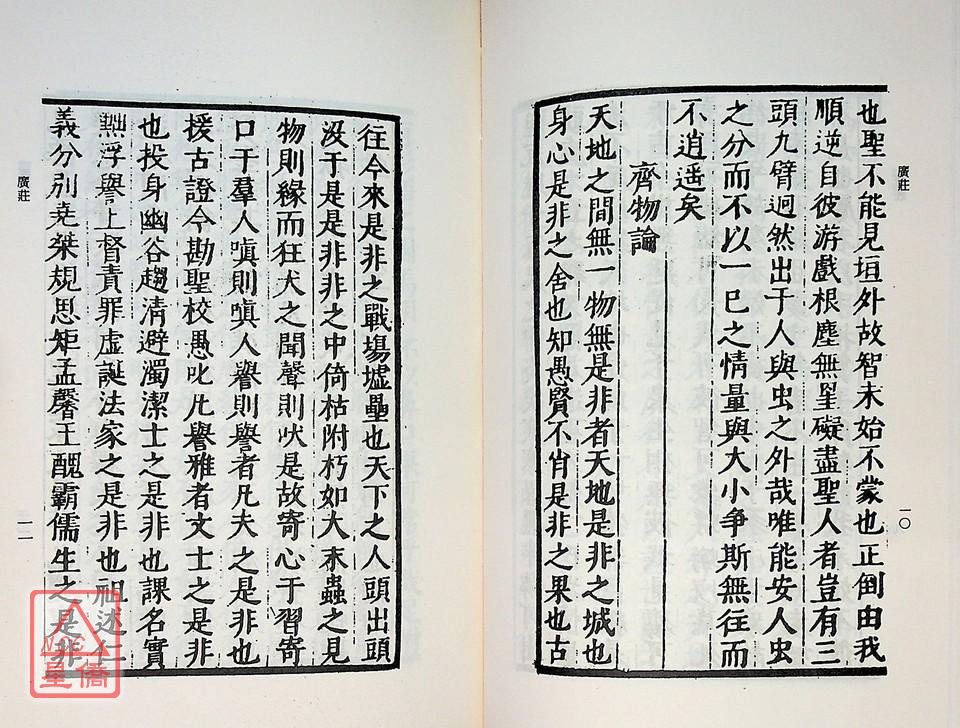 廣莊
一〇
也聖不能見垣外故智未始不蒙也正倒由我
順逆自彼游戲根塵無罣礙盡聖人者豈有三
頭九臂迥然出于人與虫之外哉唯能安人虫
之分而不以一己之情量與大小争斯無往而
不逍遥矣
齊物論
天地之間無一物無是非者天地是非之城也
身心是非之舍也知愚賢不肖是非之果也古
往今來是非之戰場墟壘也天下之人頭出頭
没于是是非非之中倚枯附朽如大末蟲之見
物則緣而狂犬之聞聲則吠是故寄心于習寄
口于羣人嗔則嗔人譽則譽者凡夫之是非也
援古證今勘聖校愚叱凡譽雅者文士之是非
也投身幽谷趨清避濁潔士之是非也課名實
黜浮譽上督責罪虛誕法家之是非也祖述仁
義分別堯桀規思矩孟馨王醜霸儒生之是非
廣莊
一一
星僑